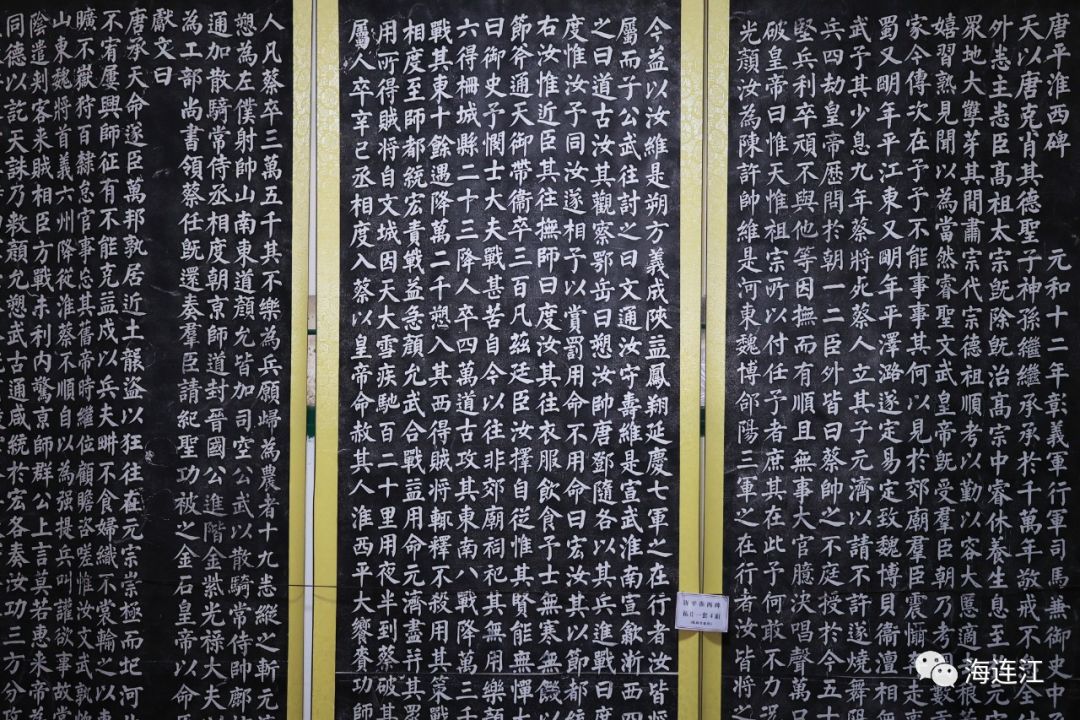 唐平淮西碑 元和十二年彰義軍行軍司馬兼御史中
天以唐克肖其德聖子神孫繼繼承承於千萬年敬戒不怠全
外悉主悉臣高祖太宗既除既治高宗中睿休養生息至 元宗
眾地大孽芽其間肅宗代宗德祖順考以勤以容大慝適 稂
嬉習熟見聞以為當然睿聖文武皇帝既受羣臣朝乃考圖數
家今傳次在予予不能事事其何以見於郊廟羣臣震懾奔走
蜀又明年平江東又明年平澤潞遂定易定致魏博貝衞澶相
武予其少息九年蔡將死蔡人立其子元濟以請不許遂燒舞陽
兵四劫皇帝歷問於朝一二臣外皆曰蔡帥之不庭授於今五十
堅兵利卒頑不與他等因撫而有順且無事大官臆決唱聲萬口
破皇帝曰惟天惟祖宗所以付任予者庶其在此予何敢不力況
光顏汝為陳許帥維是河東魏博郃陽三軍之在行者汝皆將之
今益以汝維是朔方義成陝益鳳翔延慶七軍之在行者汝皆將
屬而子公武往討之曰文通汝守壽維是宣武淮南宣歙浙西四
之曰道古汝其觀察鄂岳曰愬汝帥唐鄧隨各以其兵進戰曰度
度惟汝予同汝遂相予以賞罰用命不用命曰宏汝其以節都統
右汝惟近臣其往撫師曰度汝其往衣服飲食予士無寒無饑以
節斧通天御帶衞卒三百凡茲廷臣汝擇自從惟其賢能無憚大
曰御史予憫士大夫戰甚苦自今以往非郊廟祠祀其無用樂顏
六得柵城縣二十三降人卒四萬道古攻其東南八戰降萬三千
戰其東十餘遇降萬二千愬入其西得賊將輒釋不殺用其
相度至師都統宏責戰益急顏允武合戰益用命元濟盡幷其
用所得賊將自文城因天大雪疾馳百二十里用夜半到蔡破其
屬人卒辛巳丞相度入蔡以皇帝命赦其人淮西平大饗賚功師
人凡蔡卒三萬五千其不樂為兵願歸為農者十九悉縱之斬元
愬為左僕射帥山南東道顏允皆加司空公武以散騎常侍帥鄜
通加散騎常侍丞相度朝京師道封晉國公進階金紫光祿大夫
為工部尚書領蔡任既還奏羣臣請紀聖功被之金石皇帝以命
獻文曰
唐承天命遂臣萬邦孰居近土襲盜以狂往在元宗崇極而圮河
不宥屢興師征有不能克益戍以兵夫畊不食婦織不裳輸之以
曠不嶽狩百隸怠官事忘其舊帝時繼位顧瞻咨嗟惟汝文武孰
山東魏將首義六州降從淮蔡不順自以為强提兵叫讙欲事故
陰遣刺客來賊相臣方戰未利內驚京師群公上言莫若惠來帝
同德以訖天誅乃敕顏允愬武古通咸統於宏各奏汝功三方分攻
唐平淮西碑
拓片一套4副
海连江